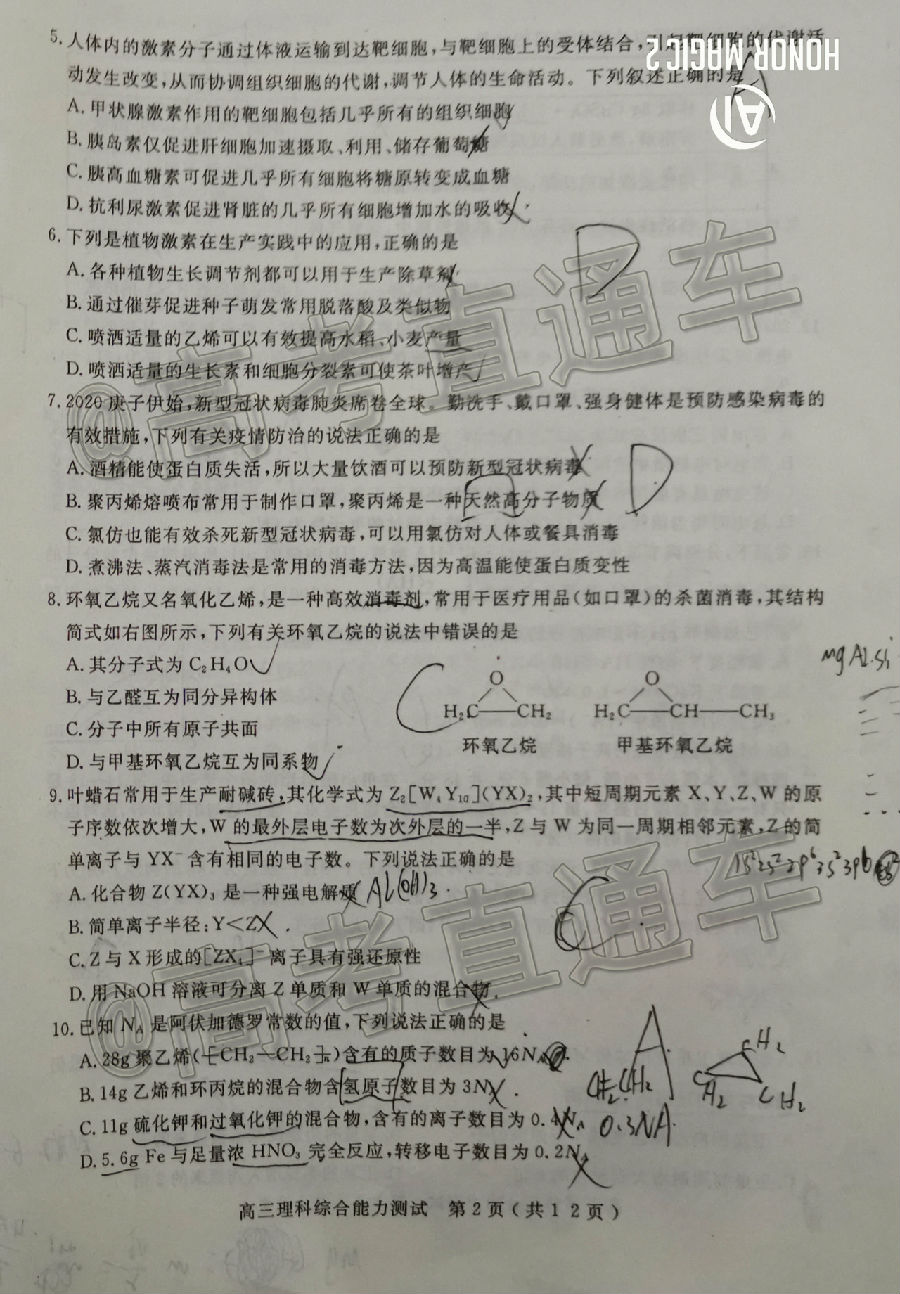 5.人体内的激素分子通过体液运输到达靶细胞,与靶细胞上的受体结合,引起靶细胞的代谢活
动发生改变,从而协调组织细胞的代谢,调节人体的生命活动。下列叙述正确的是
A.甲状腺激素作用的靶细胞包括几乎所有的组织细胞
B.胰岛素仅促进肝细胞加速摄取、利用、储存葡萄糖
C.胰高血糖素可促进几乎所有细胞将糖原转变成血糖
D.抗利尿激素促进肾脏的几乎所有细胞增加水的吸收
HONOR MAGIC 2
AI
A
6.下列是植物激素在生产实践中的应用,正确的是
A.各种植物生长调节剂都可以用于生产除草剂
B.通过催芽促进种子萌发常用脱落酸及类似物
C.喷洒适量的乙烯可以有效提高水稻、小麦产量
D.喷洒适量的生长素和细胞分裂素可使茶叶增产
D
7.2020庚子伊始,新型冠状病毒肺炎席卷全球。勤洗手、戴口罩、强身健体是预防感染病毒的
有效措施,下列有关疫情防治的说法正确的是
A.酒精能使蛋白质失活,所以大量饮酒可以预防新型冠状病毒
B.聚丙烯熔喷布常用于制作口罩,聚丙烯是一种天然高分子物质
C.氯仿也能有效杀死新型冠状病毒,可以用氯仿对人体或餐具消毒
D.煮沸法、蒸汽消毒法是常用的消毒方法,因为高温能使蛋白质变性
D
8.环氧乙烷又名氧化乙烯,是一种高效消毒剂,常用于医疗用品(如口罩)的杀菌消毒,其结构
简式如右图所示,下列有关环氧乙烷的说法中错误的是
A.其分子式为C₂H₄O
B.与乙醛互为同分异构体
C.分子中所有原子共面
D.与甲基环氧乙烷互为同系物
C
O
H₂C—CH₂
环氧乙烷
O
H₂C—CH—CH₃
甲基环氧乙烷
Mg Al Si
9.叶蜡石常用于生产耐碱砖,其化学式为Z₂[W₄Y₁₀](YX)₂,其中短周期元素X、Y、Z、W的原
子序数依次增大,W的最外层电子数为次外层的一半,Z与W为同一周期相邻元素,Z的简
单离子与YX⁻含有相同的电子数。下列说法正确的是
A.化合物Z(YX)₃是一种强电解质
B.简单离子半径:Y<Z
C.Z与X形成的[ZX₄]⁻离子具有强还原性
D.用NaOH溶液可分离Z单质和W单质的混合物
Al(OH)₃
C
10.已知N_A是阿伏加德罗常数的值,下列说法正确的是
A.28g聚乙烯(⁅CH₂—CH₂⁆)含有的质子数目为16N_A
B.14g乙烯和环丙烷的混合物含氢原子数目为3N_A
C.11g硫化钾和过氧化钾的混合物,含有的离子数目为0.4N_A
D.5.6g Fe与足量浓HNO₃完全反应,转移电子数目为0.2N_A
A
CH₂=CH₂
CH₂
CH₂
CH₂
0.3NA
高三理科综合能力测试 第2页(共12页)
@高考直通车
@高考直通车